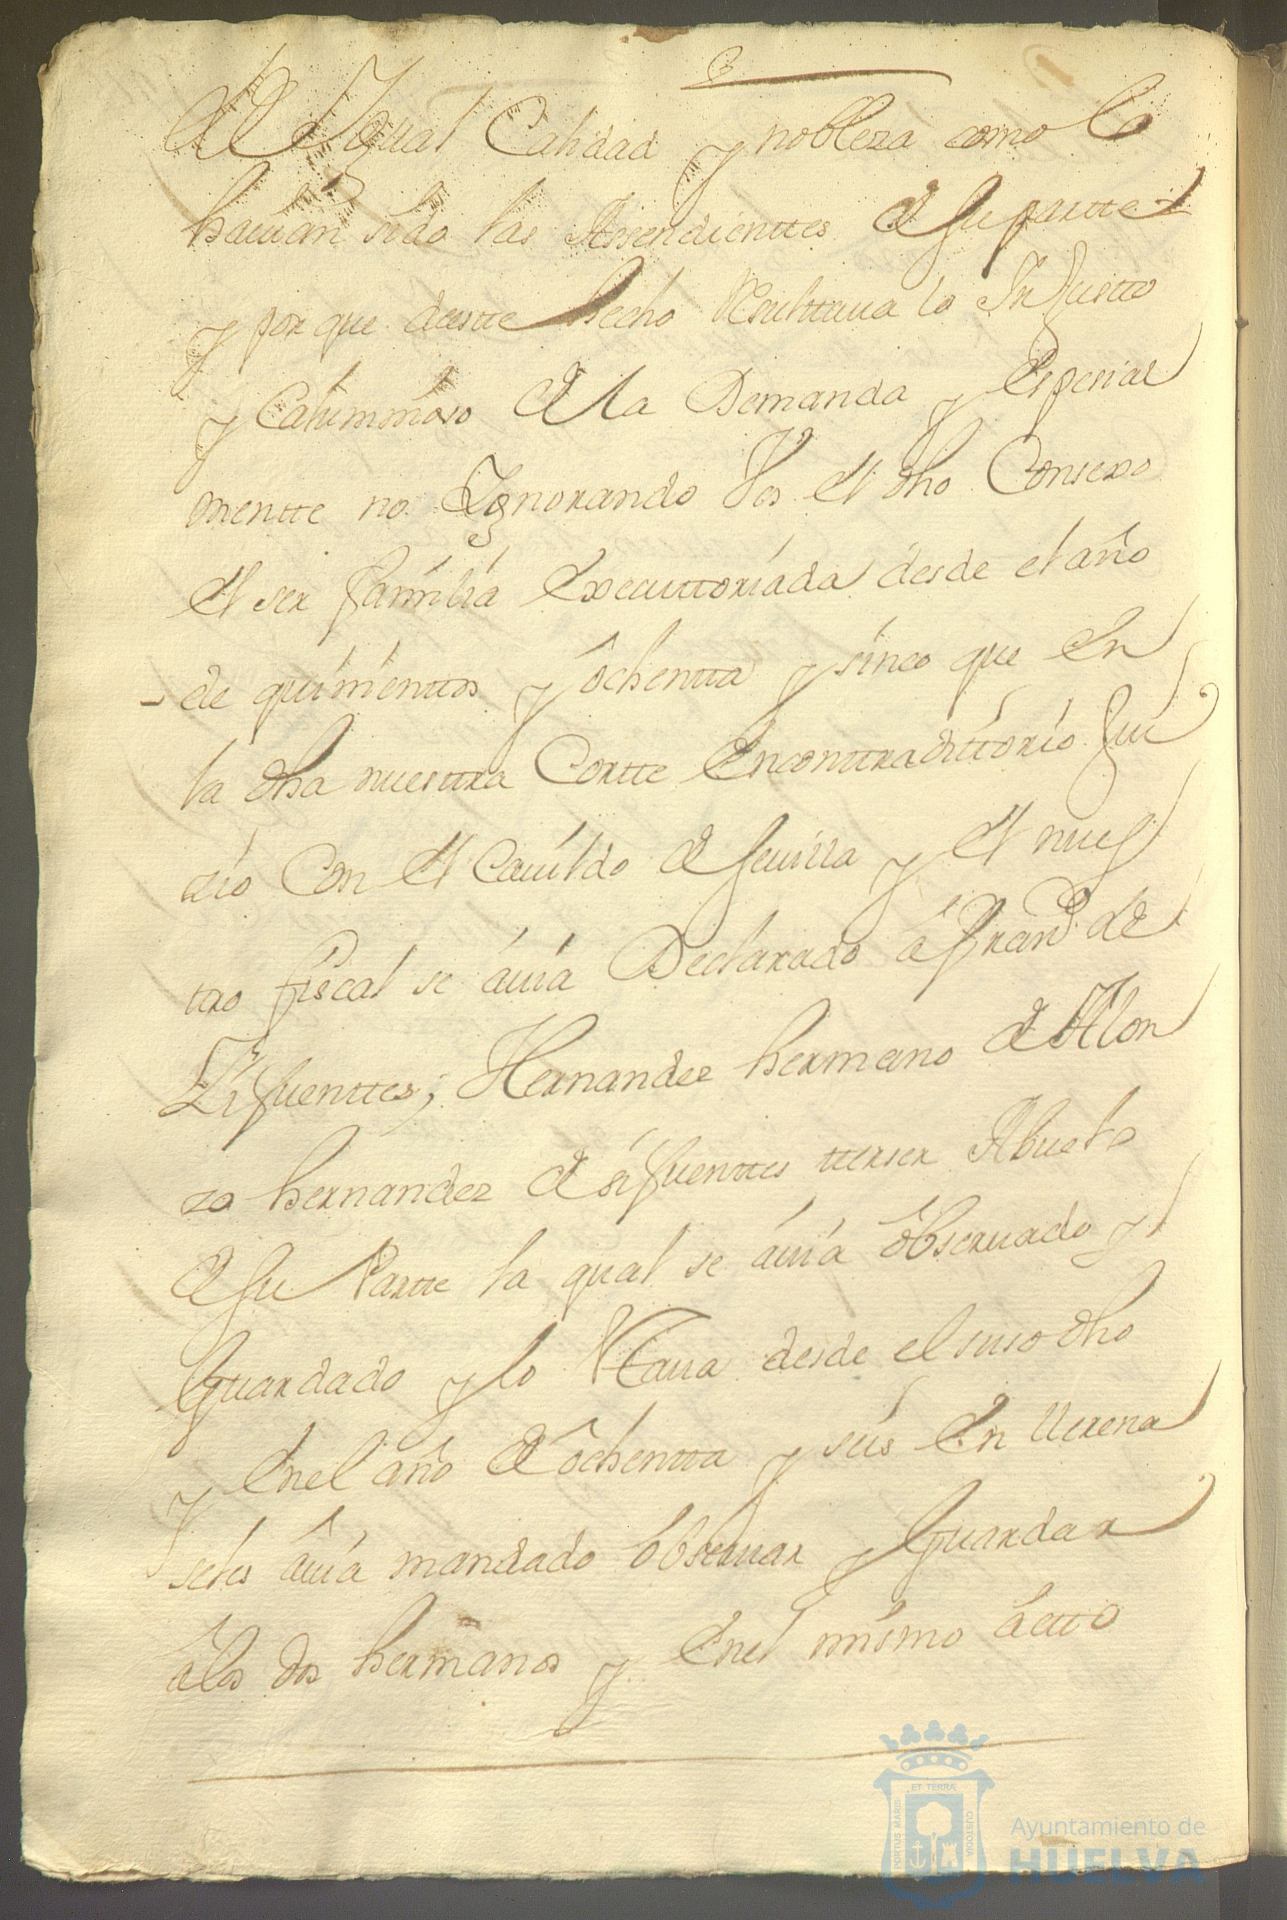 de Ygual Calidad y nobleza como lo
hauian sido las Assendienttes de su partte
y por que deestte hecho Resulttaua lo Injustto
y Calumnioso de la Demanda y Espesial
mentte no Ygnorando Ues el dho Consexo
el ser familia Executtoriada desde el año
de quinienttos y ôchentta y sinco que En
la dha nuesttra Cortte Enconttradittorio Jui
zio Con el Cauildo de Seuilla y el nues
tro fiscal se áuia Declarado á Franco. de
Zifuenttes; Hernandez hermano de Alon
zo hernandez de sifuenttes tterser Abuelo
de su Partte la qual se áuia ôbseruado y
Guardado y lo Esttaua desde el suso dho
y Enel año de ôchentta y seis En Llerena
seles áuia mandado obseruar y Guardar
álos dos hermanos y Enel mismo Actto
ET TERRÆ
PORTUS MARIS
CUSTODIA
Ayuntamiento de
HUELVA